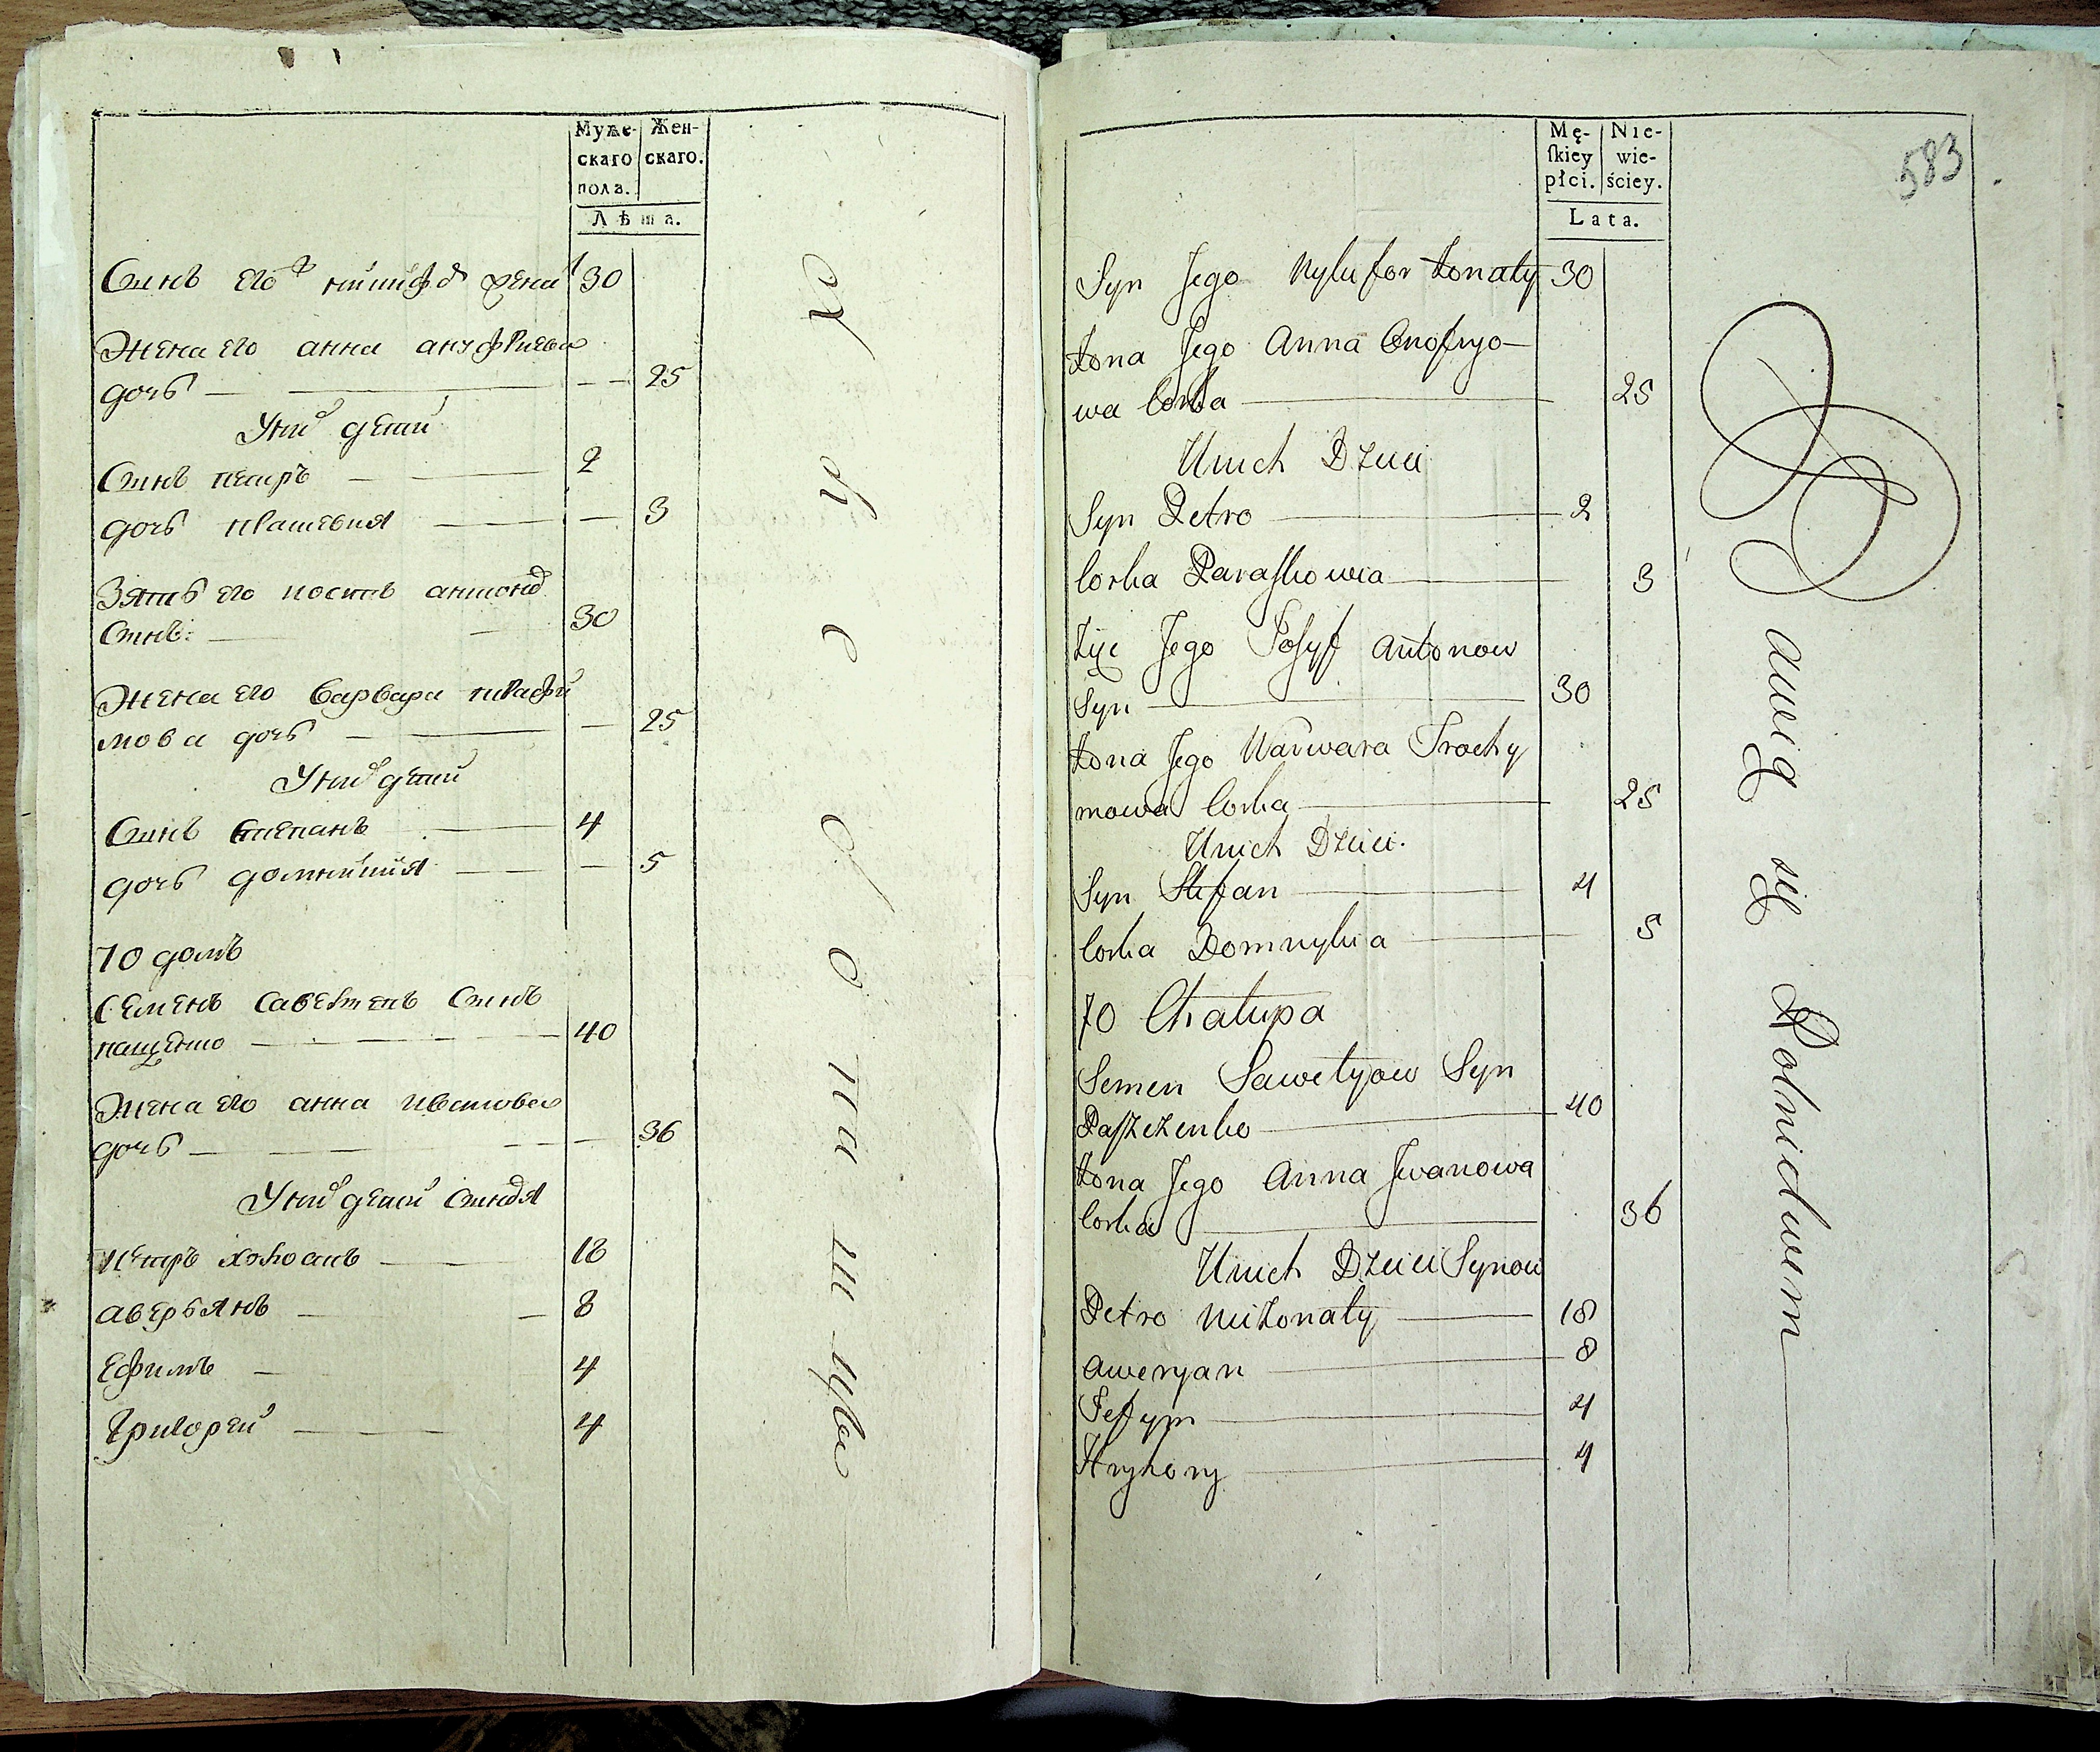 Муже-
скаго
пола.
Жен-
скаго.
Лѣта.
Синъ его никифоръ женат 30
Жена его анна ануфриева
дочь — 25
У них дети
Синъ петръ — 2
дочь прасковия — 3
Зять его иосипъ антонов
Синъ: — 30
Жена его варвара трафи
мова дочь — 25
У них дети
Синъ степанъ — 4
дочь домникия — 5
70 домъ
Семенъ савельевъ Синъ
пащенко — 40
Жена его анна иванова
дочь — 36
У них дети Синовя
петръ холостъ — 18
аверьянъ — 8
Ефимъ — 4
Григорей — 4
Mę-
skiey
płci.
Nie-
wie-
ściey.
Lata.
583
Syn Jego Nykyfor żonaty 30
żona Jego Anna Onofryo-
wa Corka — 25
Unich Dzieci
Syn Petro — 2
Corka Paraskowia — 3
Zięć Jego Josyf Antonow
Syn — 30
żona Jego Warwara Trochy
mowa Corka — 25
Unich Dzieci.
Syn Stefan — 4
Corka Domnykia — 5
70 Chałupa
Semen Sawetyow Syn
Paszczenko — 40
żona Jego Anna Jwanowa
Corka — 36
Unich Dzieci Synow
Petro nieżonaty — 18
Aweryan — 8
Jefym — 4
Hryhory — 4
Bawią się Rolnictwem